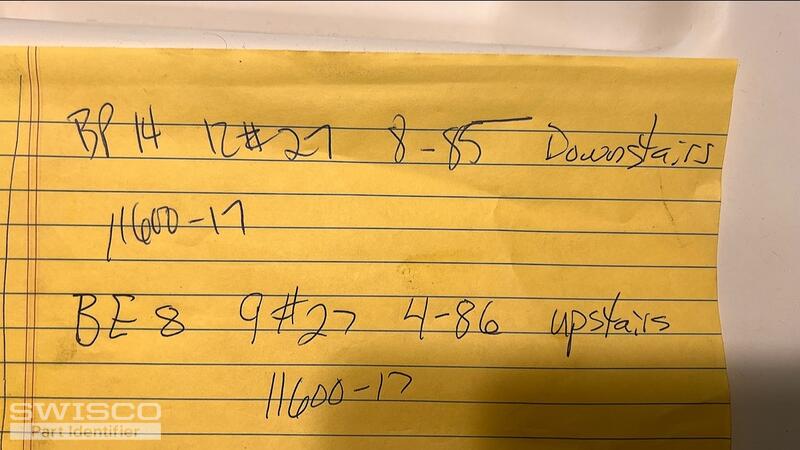 BP 14 12#27 8-85 Downstairs
11600-17
BE 8 9#27 4-86 upstairs
11600-17
SWISCO
Part Identifier